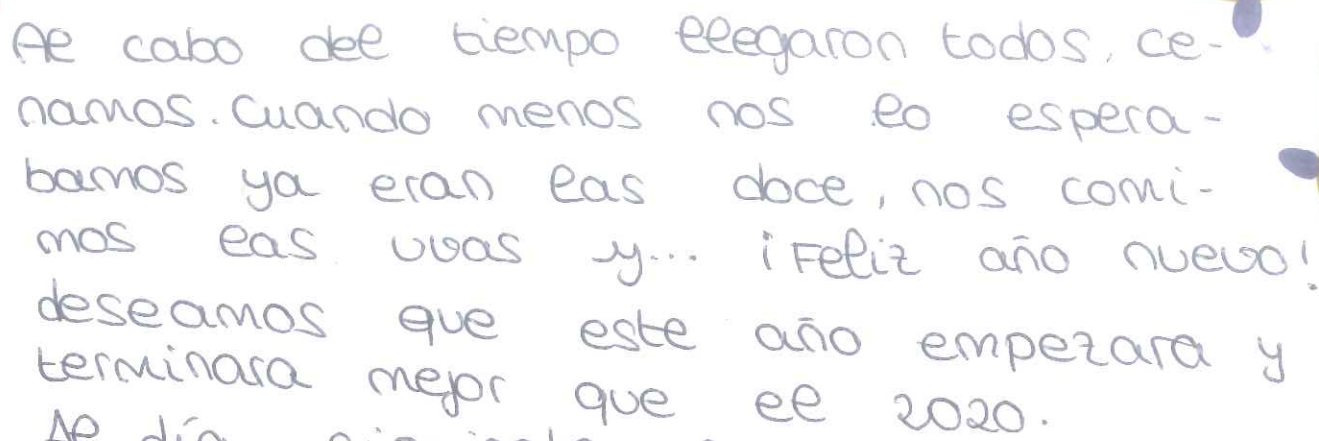 Al cabo del tiempo llegaron todos, ce-
namos. Cuando menos nos lo espera-
bamos ya eran las doce, nos comi-
mos las uvas y... ¡Feliz año nuevo!
deseamos que este año empezara y
terminara mejor que el 2020.
Al día